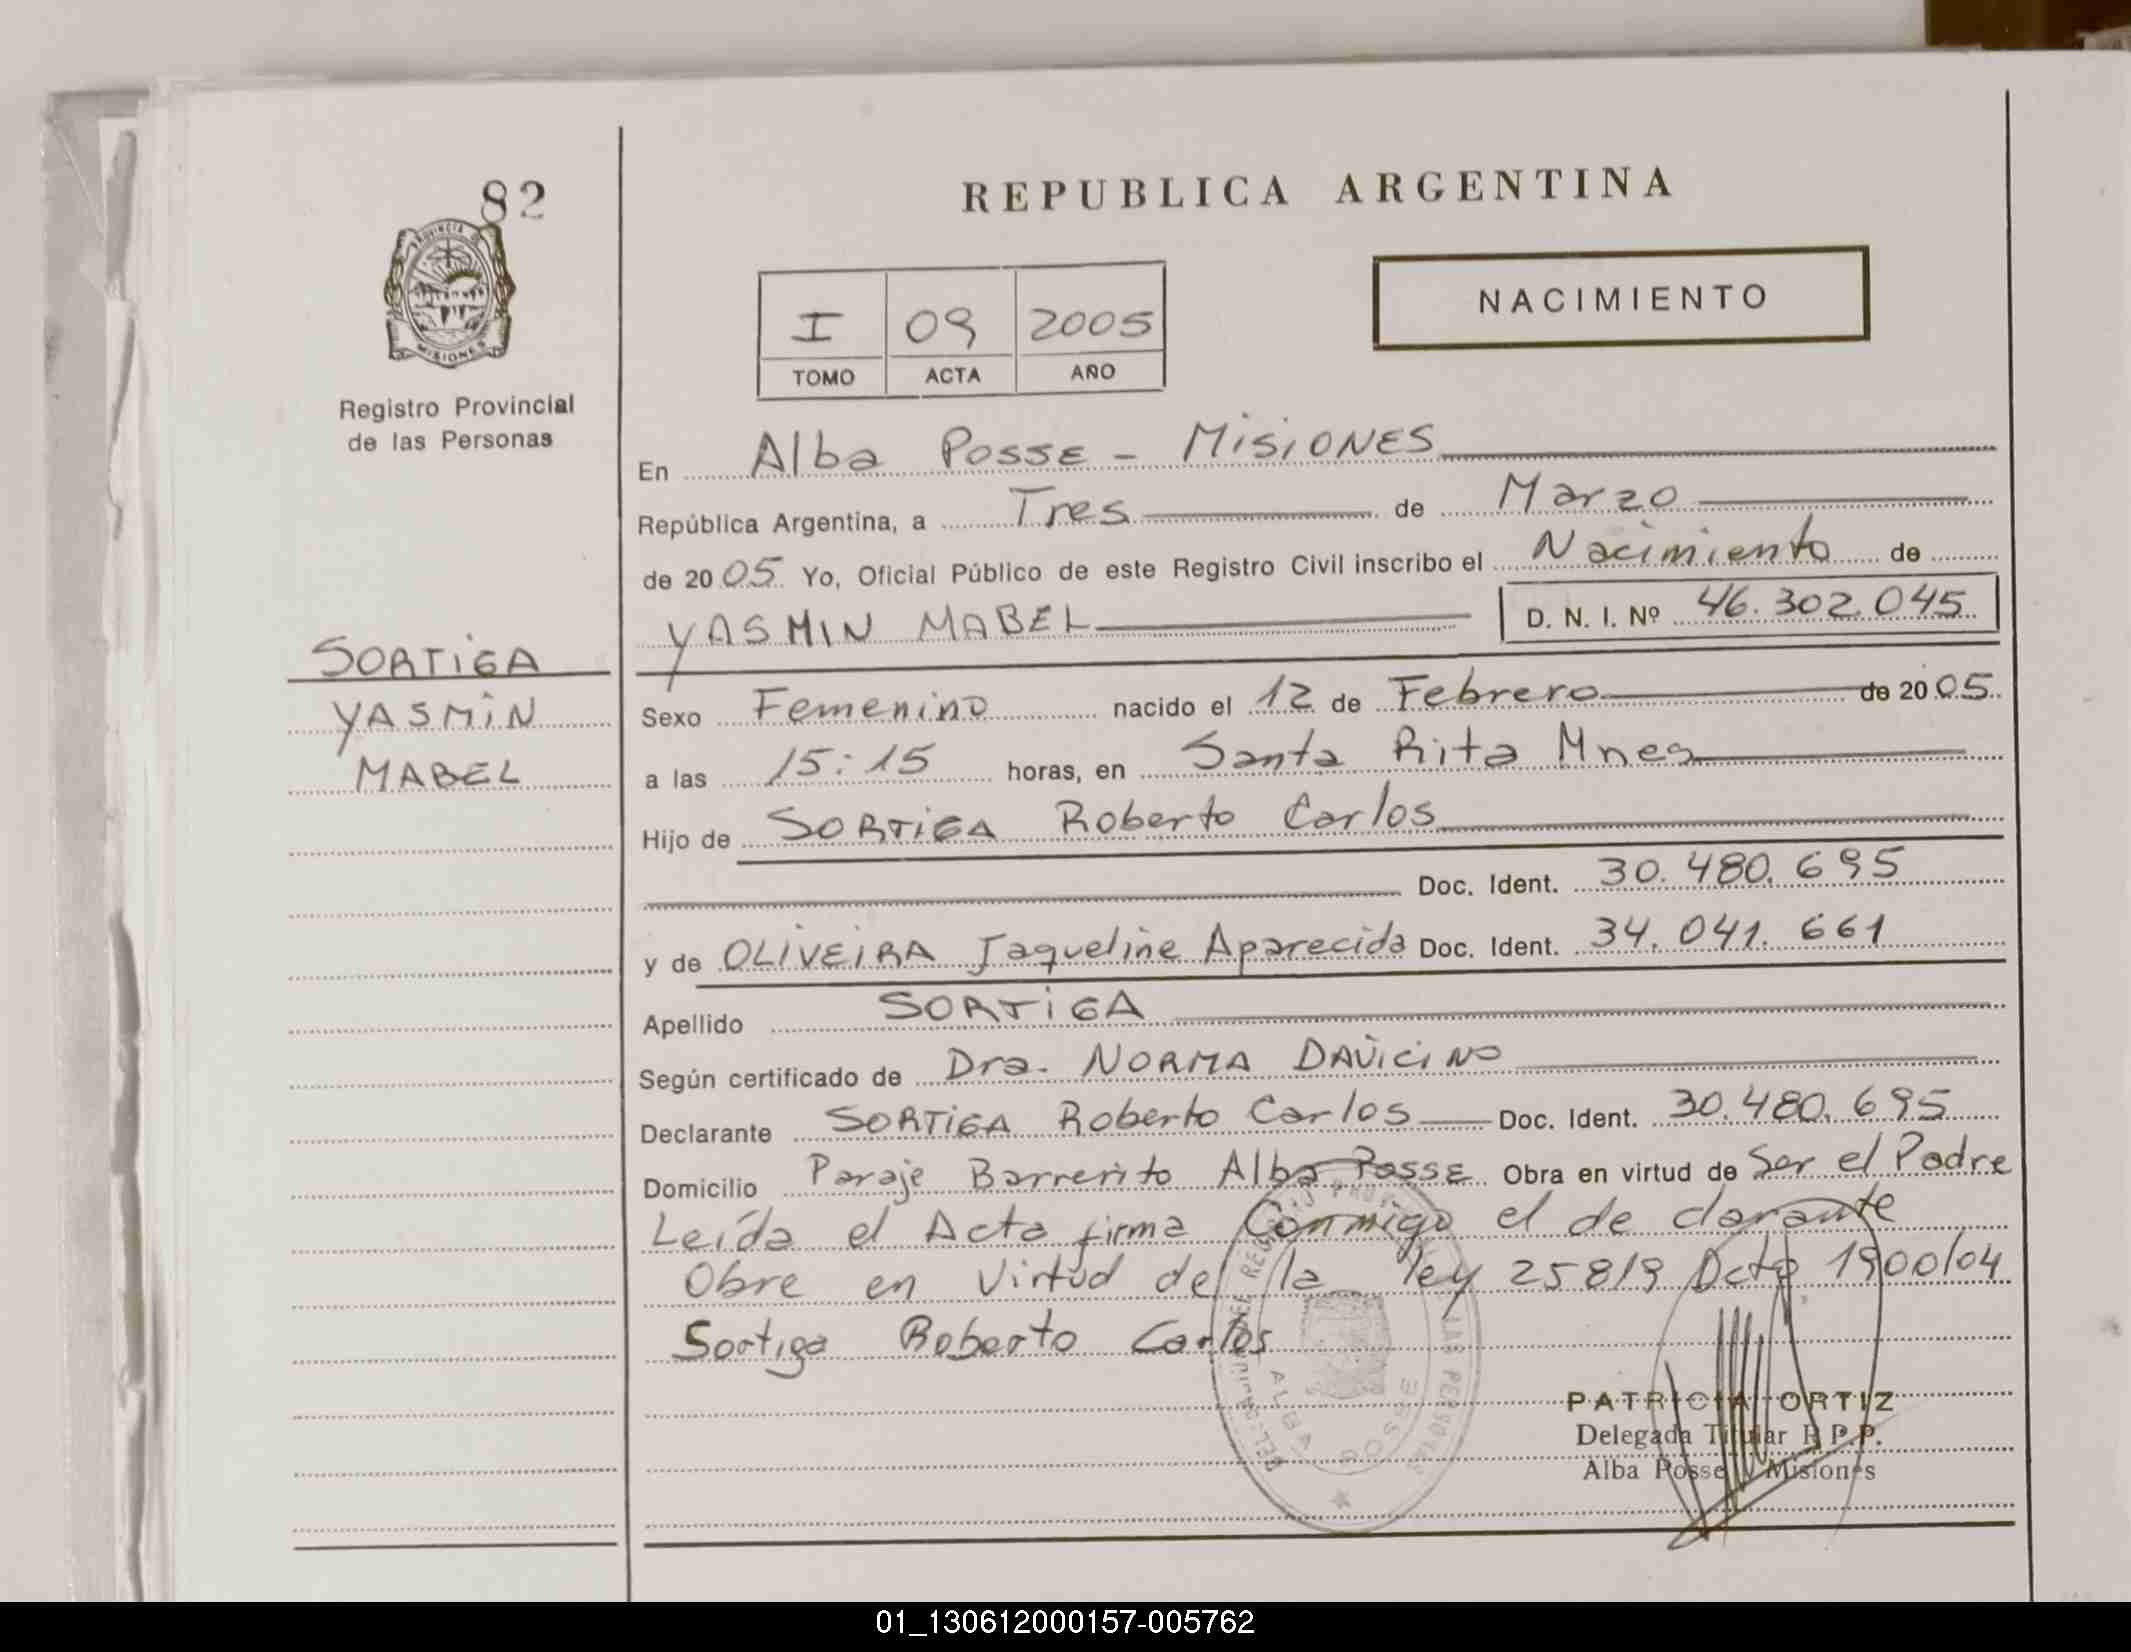 82
PROVINCIA DE
MISIONES
Registro Provincial
de las Personas
SORTIGA
YASMIN
MABEL
REPUBLICA ARGENTINA
I 09 2005
TOMO ACTA AÑO
NACIMIENTO
En Alba Posse - Misiones
República Argentina, a Tres de Marzo
de 2005 Yo, Oficial Público de este Registro Civil inscribo el Nacimiento de
YASMIN MABEL D. N. I. Nº 46.302.045
Sexo Femenino nacido el 12 de Febrero de 2005
a las 15:15 horas, en Santa Rita Mnes
Hijo de SORTIGA Roberto Carlos
Doc. Ident. 30.480.695
y de OLIVEIRA Jaqueline Aparecida Doc. Ident. 34.041.661
Apellido SORTIGA
Según certificado de Dra. NORMA DAVICINO
Declarante SORTIGA Roberto Carlos Doc. Ident. 30.480.695
Domicilio Paraje Barrerito Alba Posse Obra en virtud de Ser el Padre
Leída el Acta firma Conmigo el de clarante
Obre en Virtud de la ley 25819 Dcto 1900/04
Sortiga Roberto Carlos
ALBA POSSE
PATRICIA ORTIZ
Delegada Titular R.P.P.
Alba Posse Misiones
01_130612000157-005762